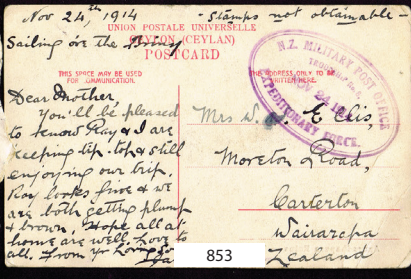 Nov 24th, 1914
- Stamps not obtainable -
UNION POSTALE UNIVERSELLE
CEYLON (CEYLAN)
Sailing o'er the briny
POSTCARD
THIS SPACE MAY BE USED
FOR COMMUNICATION.
THIS ADDRESS ONLY TO BE
WRITTEN HERE.
N.Z. MILITARY POST OFFICE
NOV 24 1914
EXPEDITIONARY FORCE.
Dear Mother,
You'll be pleased
to know Ray & I are
keeping tip-top & still
enjoying our trip.
Ray looks fine & we
are both getting plump
& brown. Hope all at
home are well. Love to
all. From yr Loving Son
Mrs W. Ellis,
Moreton Road,
Carterton
Wairarapa
Zealand
853